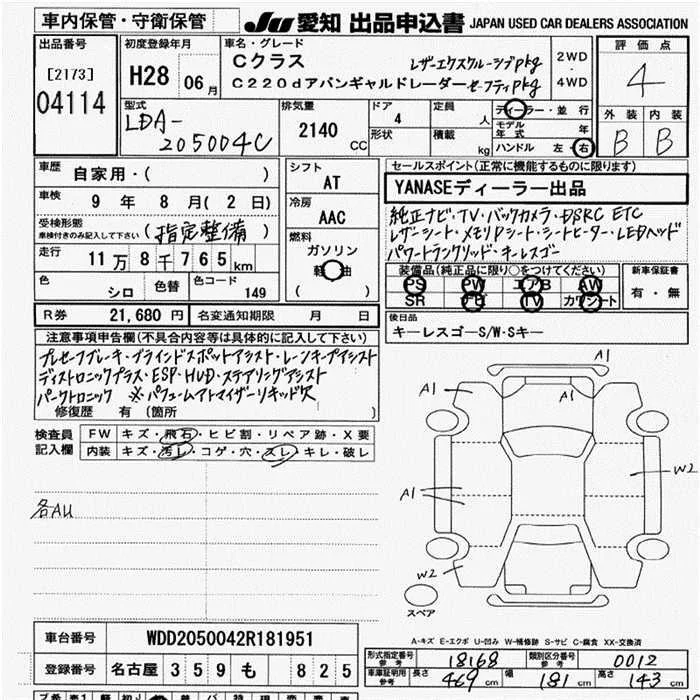 車内保管・守衛保管
JU 愛知 出品申込書 JAPAN USED CAR DEALERS ASSOCIATION
出品番号
[2173]
04114
初度登録年月
H28 06月
車名・グレード
Cクラス レザーエクスクルーシブpkg
C220dアバンギャルドレーダーセーフティpkg
2WD・4WD
評価点
4
外装 内装
B B
型式
LDA-
205004C
排気量
2140 CC
ドア
4
形状
定員
人
積載
kg
ディーラー・並行
モデル年式 年
ハンドル 左・右
車歴
自家用・( )
車検
9年 8月(2日)
受検形態
車検付きのみ記入して下さい
(指定整備)
走行
11万8千765km
色
シロ
色替
色コード
149
シフト
AT
冷房
AAC
燃料
ガソリン
軽油
( )
セールスポイント(正常に機能するものに限ります)
YANASEディーラー出品
純正ナビ・TV・バックカメラ・DSRC ETC
レザーシート・メモリPシート・シートヒーター・LEDヘッド
パワートランクリッド・キーレスゴー
装備品(純正品に限り○をつけてください)
PS PW エアB AW
SR ナビ TV カワシート
新車保証書
有・無
R券 21,680円 名変通知期限 月 日
後日品
キーレスゴーS/W・Sキー
注意事項申告欄(不具合内容等は具体的に記入して下さい)
プレセーフブレーキ・ブラインドスポットアシスト・レーンキープアシスト
ディストロニックプラス・ESP・HUD・ステアリングアシスト
パークトロニック ※パフュームアトマイザーリキッド欠
修復歴 有(箇所
検査員記入欄
FW キズ・飛石・ヒビ割・リペア跡・X要
内装 キズ・汚レ・コゲ・穴・スレ・キレ・破レ
各AU
A1
A1
A1
A1
W2
W2
スペア
A-キズ E-エクボ U-凹み W-補修跡 S-サビ C-腐食 XX-交換済
車台番号 WDD2050042R181951
登録番号 名古屋 359 も 825
形式指定番号 参考 18168 類別区分番号 参考 0012
車庫証明用 参考 長さ 469 cm 幅 181 cm 高さ 143 cm